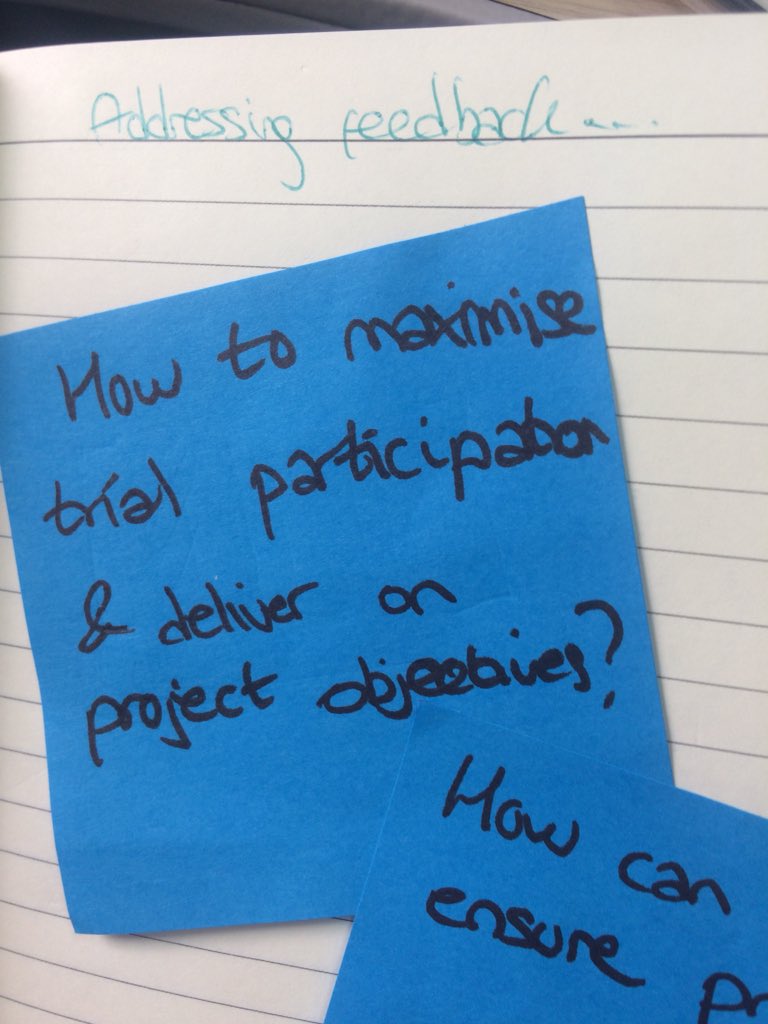 Addressing feedback....
How to maximise
trial participation
& deliver on
project objectives?
How can
ensure pr